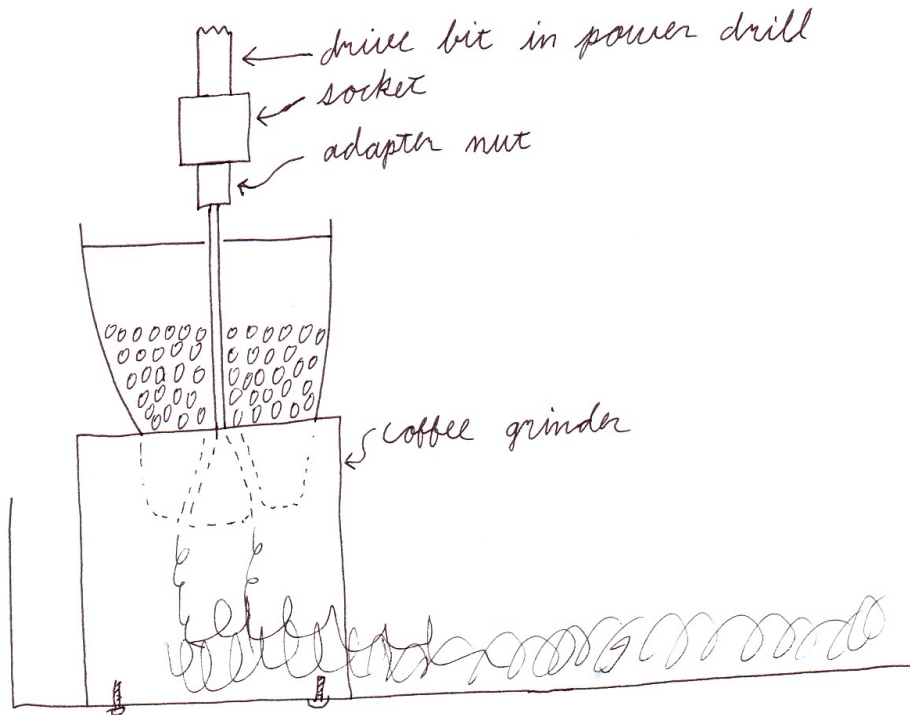 drive bit in power drill
socket
adapter nut
coffee grinder